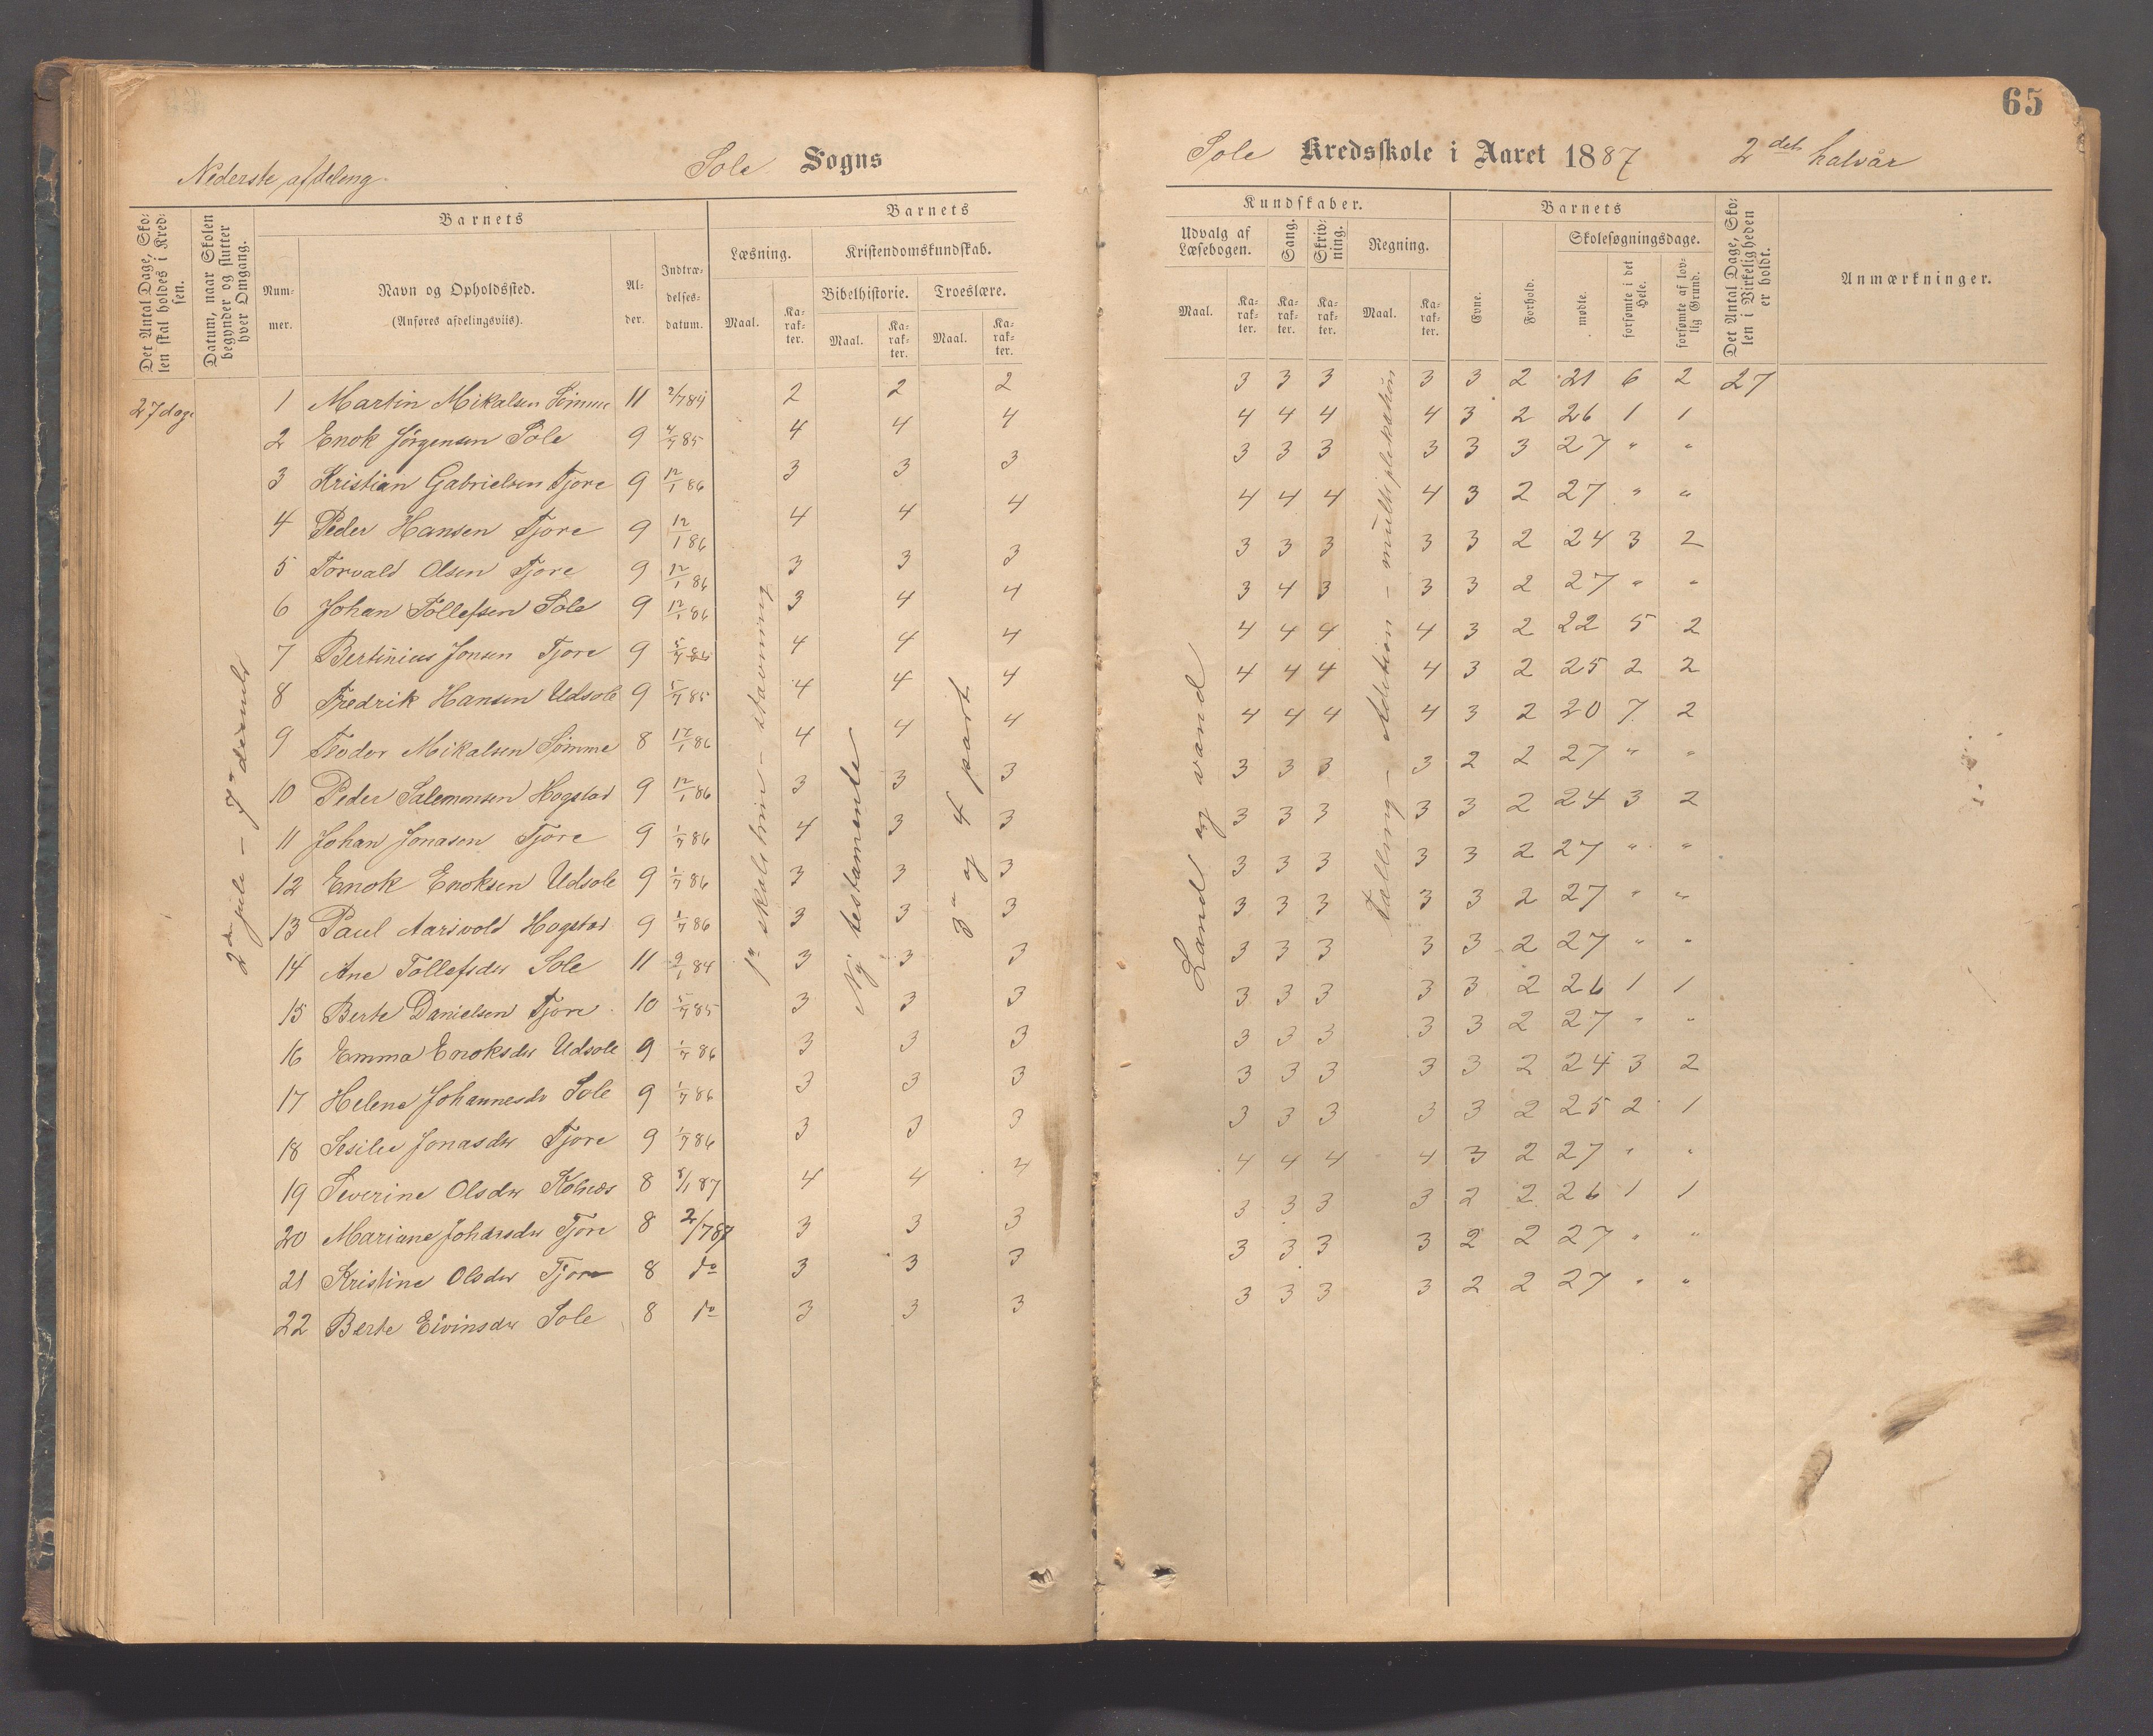 65
Nederste afdeling. Sole Sogns
Sole Kredsskole i Aaret 1887 2det halvår
Det Antal Dage, Sko-
len skal holdes i Kred-
sen.
Datum, naar Skolen
begynder og slutter
hver Omgang.
Barnets
Num-
mer.
Navn og Opholdssted.
(Anføres afdelingsviis).
Al-
der.
Indtræ-
delses-
datum.
Barnets
Læsning.
Maal.
Ka-
rak-
ter.
Kristendomskundskab.
Bibelhistorie.
Maal.
Ka-
rak-
ter.
Troeslære.
Maal.
Ka-
rak-
ter.
Kundskaber.
Udvalg af
Læsebogen.
Maal.
Ka-
rak-
ter.
Sang.
Ka-
rak-
ter.
Skriv-
ning.
Ka-
rak-
ter.
Regning.
Maal.
Ka-
rak-
ter.
Barnets
Evne.
Forhold.
Skolesøgningsdage.
mødte.
forsømte i det
Hele.
forsømte af lov-
lig Grund.
Det Antal Dage, Sko-
len i Virkeligheden
er holdt.
Anmærkninger.
27 dage
2den juli – 7de desembr
1ste skoletrin – stavning
Ny testamente
3die og 4 part
Land og vand
Tælling – Adition – multiplekation
1 Martin Mikalsen Sømme 11 2/7 84 2 2 2 3 3 3 3 3 2 21 6 2 27
2 Enok Jørgensen Sole 9 4/7 85 4 4 4 4 4 4 4 3 2 26 1 1
3 Kristian Gabrielsen Tjore 9 12/1 86 3 3 3 3 3 3 3 3 3 27 " "
4 Peder Hansen Tjore 9 12/1 86 4 4 4 4 4 4 4 3 2 27 " "
5 Torvald Olsen Tjore 9 12/1 86 3 3 3 3 3 3 3 3 2 24 3 2
6 Johan Tollefsen Sole 9 12/1 86 3 4 4 3 4 3 3 3 2 27 " "
7 Bertinius Jonsen Tjore 9 5/7 86 4 4 4 4 4 4 4 3 2 22 5 2
8 Fredrik Hansen Udsole 9 5/7 85 4 4 4 4 4 4 4 3 2 25 2 2
9 Teodor Mikalsen Sømme 8 12/1 86 4 4 4 4 4 4 4 3 2 20 7 2
10 Peder Salemonsen Hogstad 9 12/1 86 3 3 3 3 3 3 3 2 2 27 " "
11 Johan Jonasen Tjore 9 1/7 86 4 3 3 3 3 3 3 3 2 24 3 2
12 Enok Enoksen Udsole 9 1/7 86 3 3 3 3 3 3 3 3 2 27 " "
13 Paul Aarsvold Hogstad 9 1/7 86 3 3 3 3 3 3 3 3 2 27 " "
14 Ane Tollefsdr Sole 11 2/1 84 3 3 3 3 3 3 3 3 2 27 " "
15 Berte Danielsen Tjore 10 5/7 85 3 3 3 3 3 3 3 3 2 26 1 1
16 Emma Enoksdr Udsole 9 1/7 86 3 3 3 3 3 3 3 3 2 27 " "
17 Helene Johannesdr Sole 9 1/7 86 3 3 3 3 3 3 3 3 2 24 3 2
18 Sesilie Jonasdr Tjore 9 1/7 86 3 3 3 3 3 3 3 3 2 25 2 1
19 Severine Olsdr Kolnes 8 5/1 87 4 4 4 4 4 4 4 3 2 27 " "
20 Mariane Johansdr Tjore 8 2/7 87 3 3 3 3 3 3 3 2 2 26 1 1
21 Kristine Olsdr Tjore 8 do 3 3 3 3 3 3 3 2 2 27 " "
22 Berte Eivinsdr Sole 8 do 3 3 3 3 3 3 3 2 2 27 " "